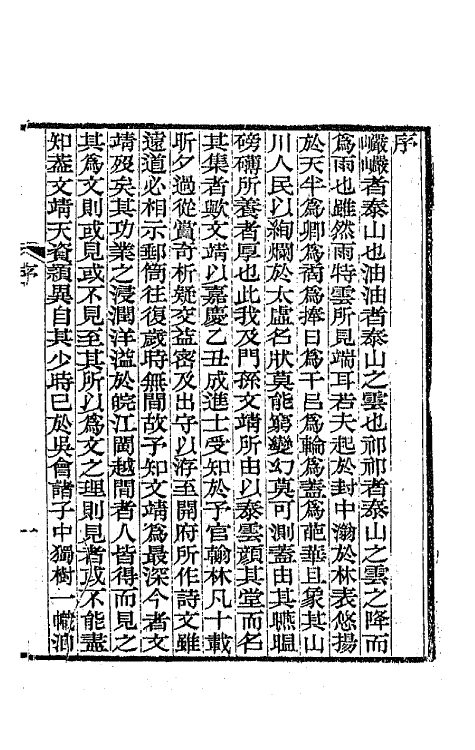 序
巗巗者泰山也油油者泰山之雲也祁祁者泰山之雲之降而
爲雨也雖然雨特雲所見端耳若夫起於封中滃於林表悠揚
於天半爲卿爲矞爲捧日爲干呂爲輪爲蓋爲葩華且象其山
川人民以絢爛於太虛名狀莫能窮變幻莫可測蓋由其
磅礴所養者厚也此我及門孫文靖所由以泰雲顏其堂而名
其集者歟文靖以嘉慶乙丑成進士受知於予官翰林凡十載
昕夕過從賞奇析疑交益密及出守以洊至開府所作詩文雖
遠道必相示郵筒往復歲時無間故予知文靖爲最深今者文
靖歿矣其功業之浸潤洋溢於皖江閩越間者人皆得而見之
其爲文則或見或不見至其所以爲文之理則見者或不能盡
知蓋文靖天資穎異自其少時已於吳會諸子中獨樹一幟洞
序
一